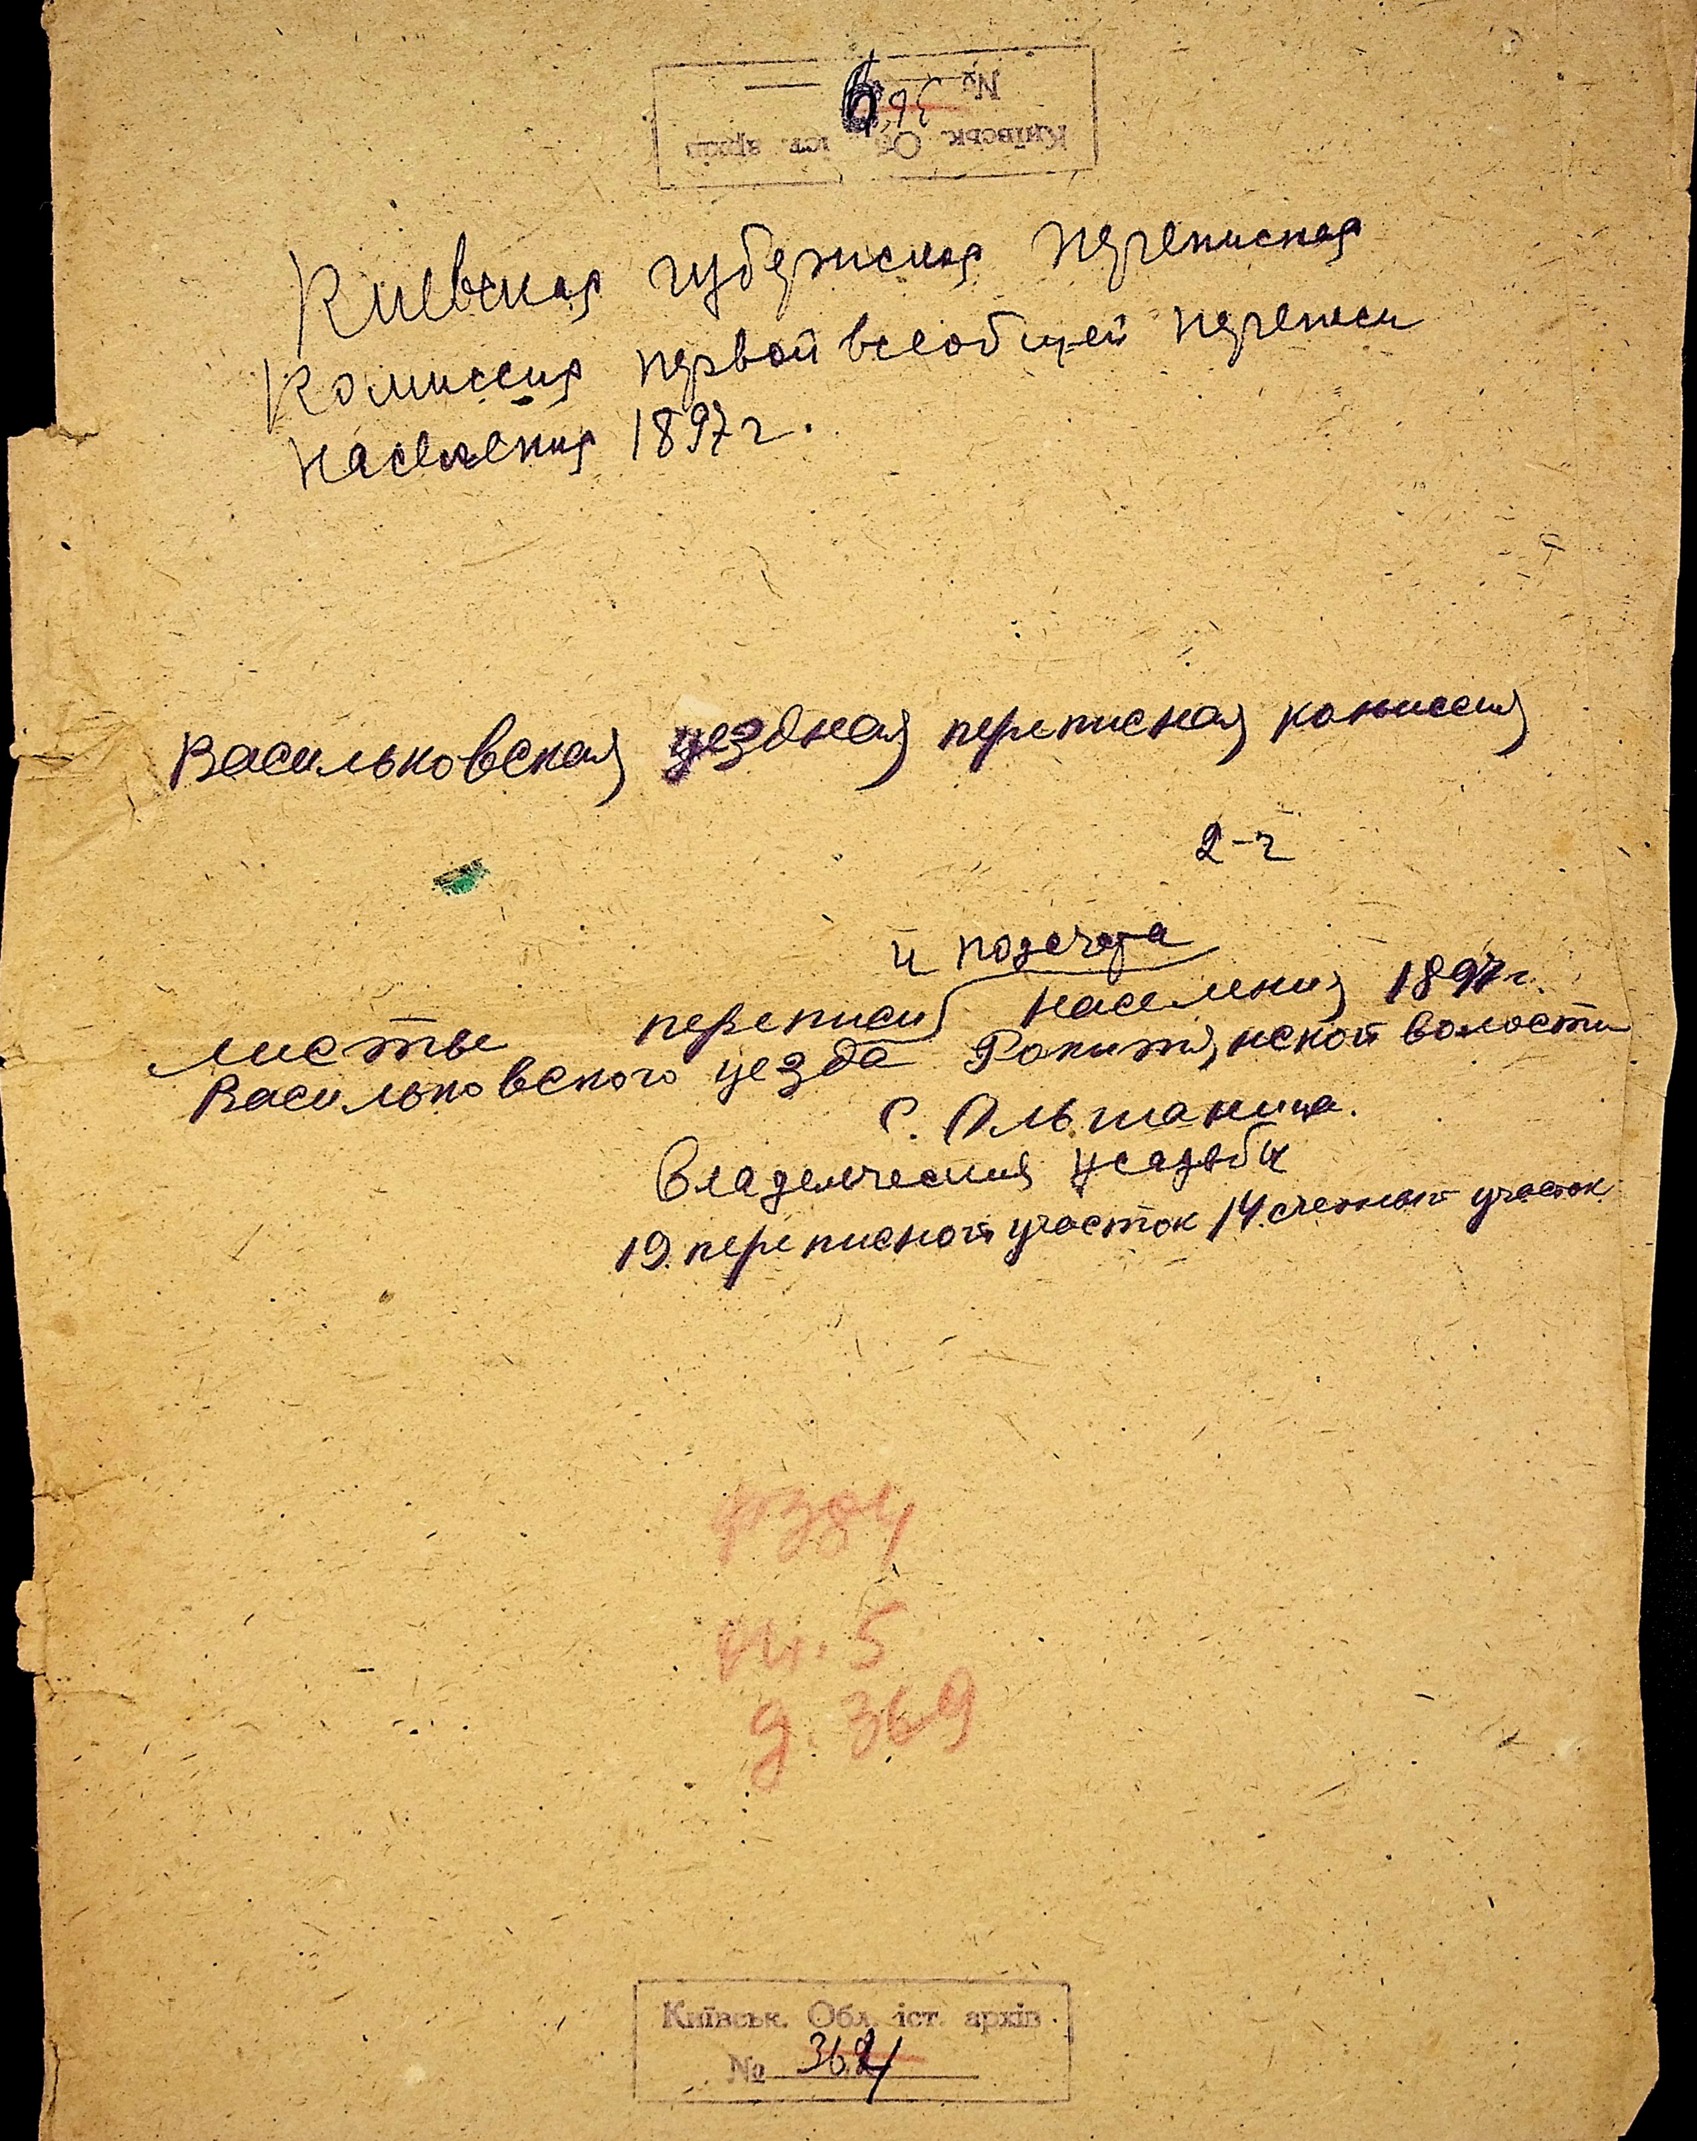 №
Київськ. Об іст. архів
6
Киевская губернская переписная
комиссия первой всеобщей переписи
населения 1897 г.
Васильковская уездная переписная комиссия
2-ч
и подсчета
листы переписи населения 1897 г.
Васильковского уезда Рокитянской волости
с. Ольшаница.
Владельческия усадьбы
19. переписной участок 14. счетный участок
Ф 384
оп. 5
д. 369
Київськ. Обл. іст. архів
№ 36